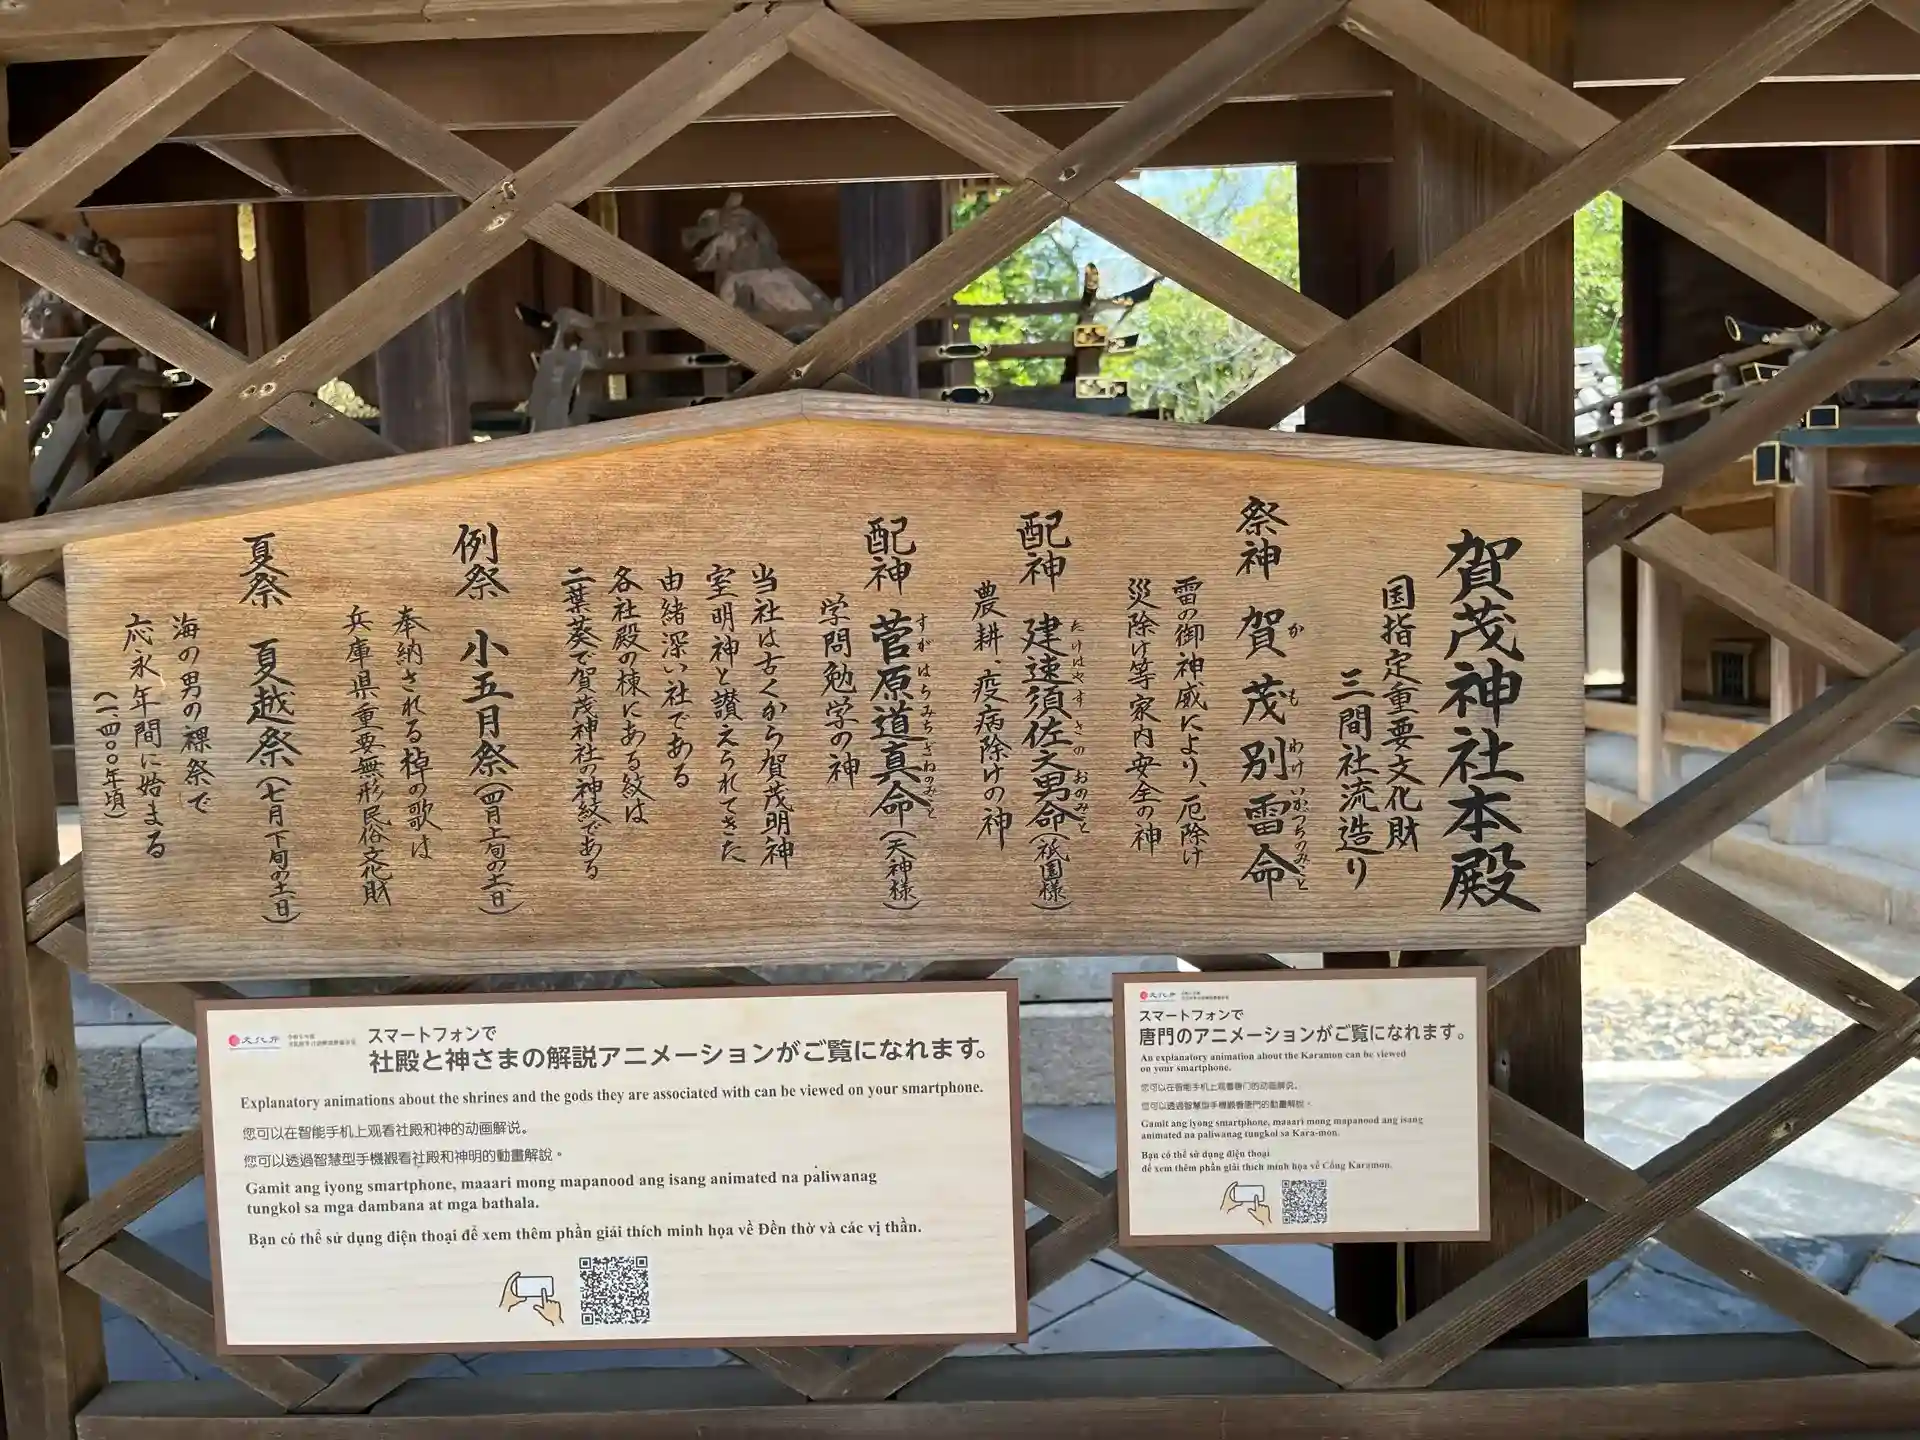 賀茂神社本殿
国指定重要文化財
三間社流造り
祭神 賀茂別雷命
かもわけいかづちのみこと
雷の御神威により、厄除け
災除け等家内安全の神
配神 建速須佐之男命(祇園様)
たけはやすさのおのみこと
農耕、疫病除けの神
配神 菅原道真命(天神様)
すがはらみちざねのみこと
学問勉学の神
当社は古くから賀茂明神
室明神と讃えられてきた
由緒深い社である
各社殿の棟にある紋は
二葉葵で賀茂神社の神紋である
例祭 小五月祭(四月上旬の土、日)
奉納される棹の歌は
兵庫県重要無形民俗文化財
夏祭 夏越祭(七月下旬の土、日)
海の男の裸祭で
応永年間に始まる
(一、四〇〇年頃)
文化庁
スマートフォンで
社殿と神さまの解説アニメーションがご覧になれます。
Explanatory animations about the shrines and the gods they are associated with can be viewed on your smartphone.
您可以在智能手机上观看社殿和神的动画解说。
您可以透過智慧型手機觀看社殿和神明的動畫解說。
Gamit ang iyong smartphone, maaari mong mapanood ang isang animated na paliwanag
tungkol sa mga dambana at mga bathala.
Bạn có thể sử dụng điện thoại để xem thêm phần giải thích minh họa về Đền thờ và các vị thần.
文化庁
スマートフォンで
唐門のアニメーションがご覧になれます。
An explanatory animation about the Karamon can be viewed
on your smartphone.
您可以在智能手机上观看唐门的动画解说。
您可以透過智慧型手機觀看唐門的動畫解說。
Gamit ang iyong smartphone, maaari mong mapanood ang isang
animated na paliwanag tungkol sa Kara-mon.
Bạn có thể sử dụng điện thoại
để xem thêm phần giải thích minh họa về Cổng Karamon.